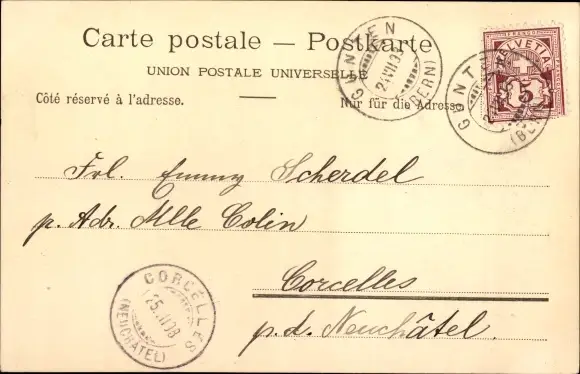 Carte postale — Postkarte
UNION POSTALE UNIVERSELLE
Côté réservé à l'adresse.
Nur für die Adresse
GUNTEN
(BERN)
FRANCO
HELVETIA
5
GUNTEN
Frl. Emmy Scherdel
p. Adr. Mlle Colin
Corcelles
p. d. Neuchâtel.
CORCELLES
(NEUCHATEL)